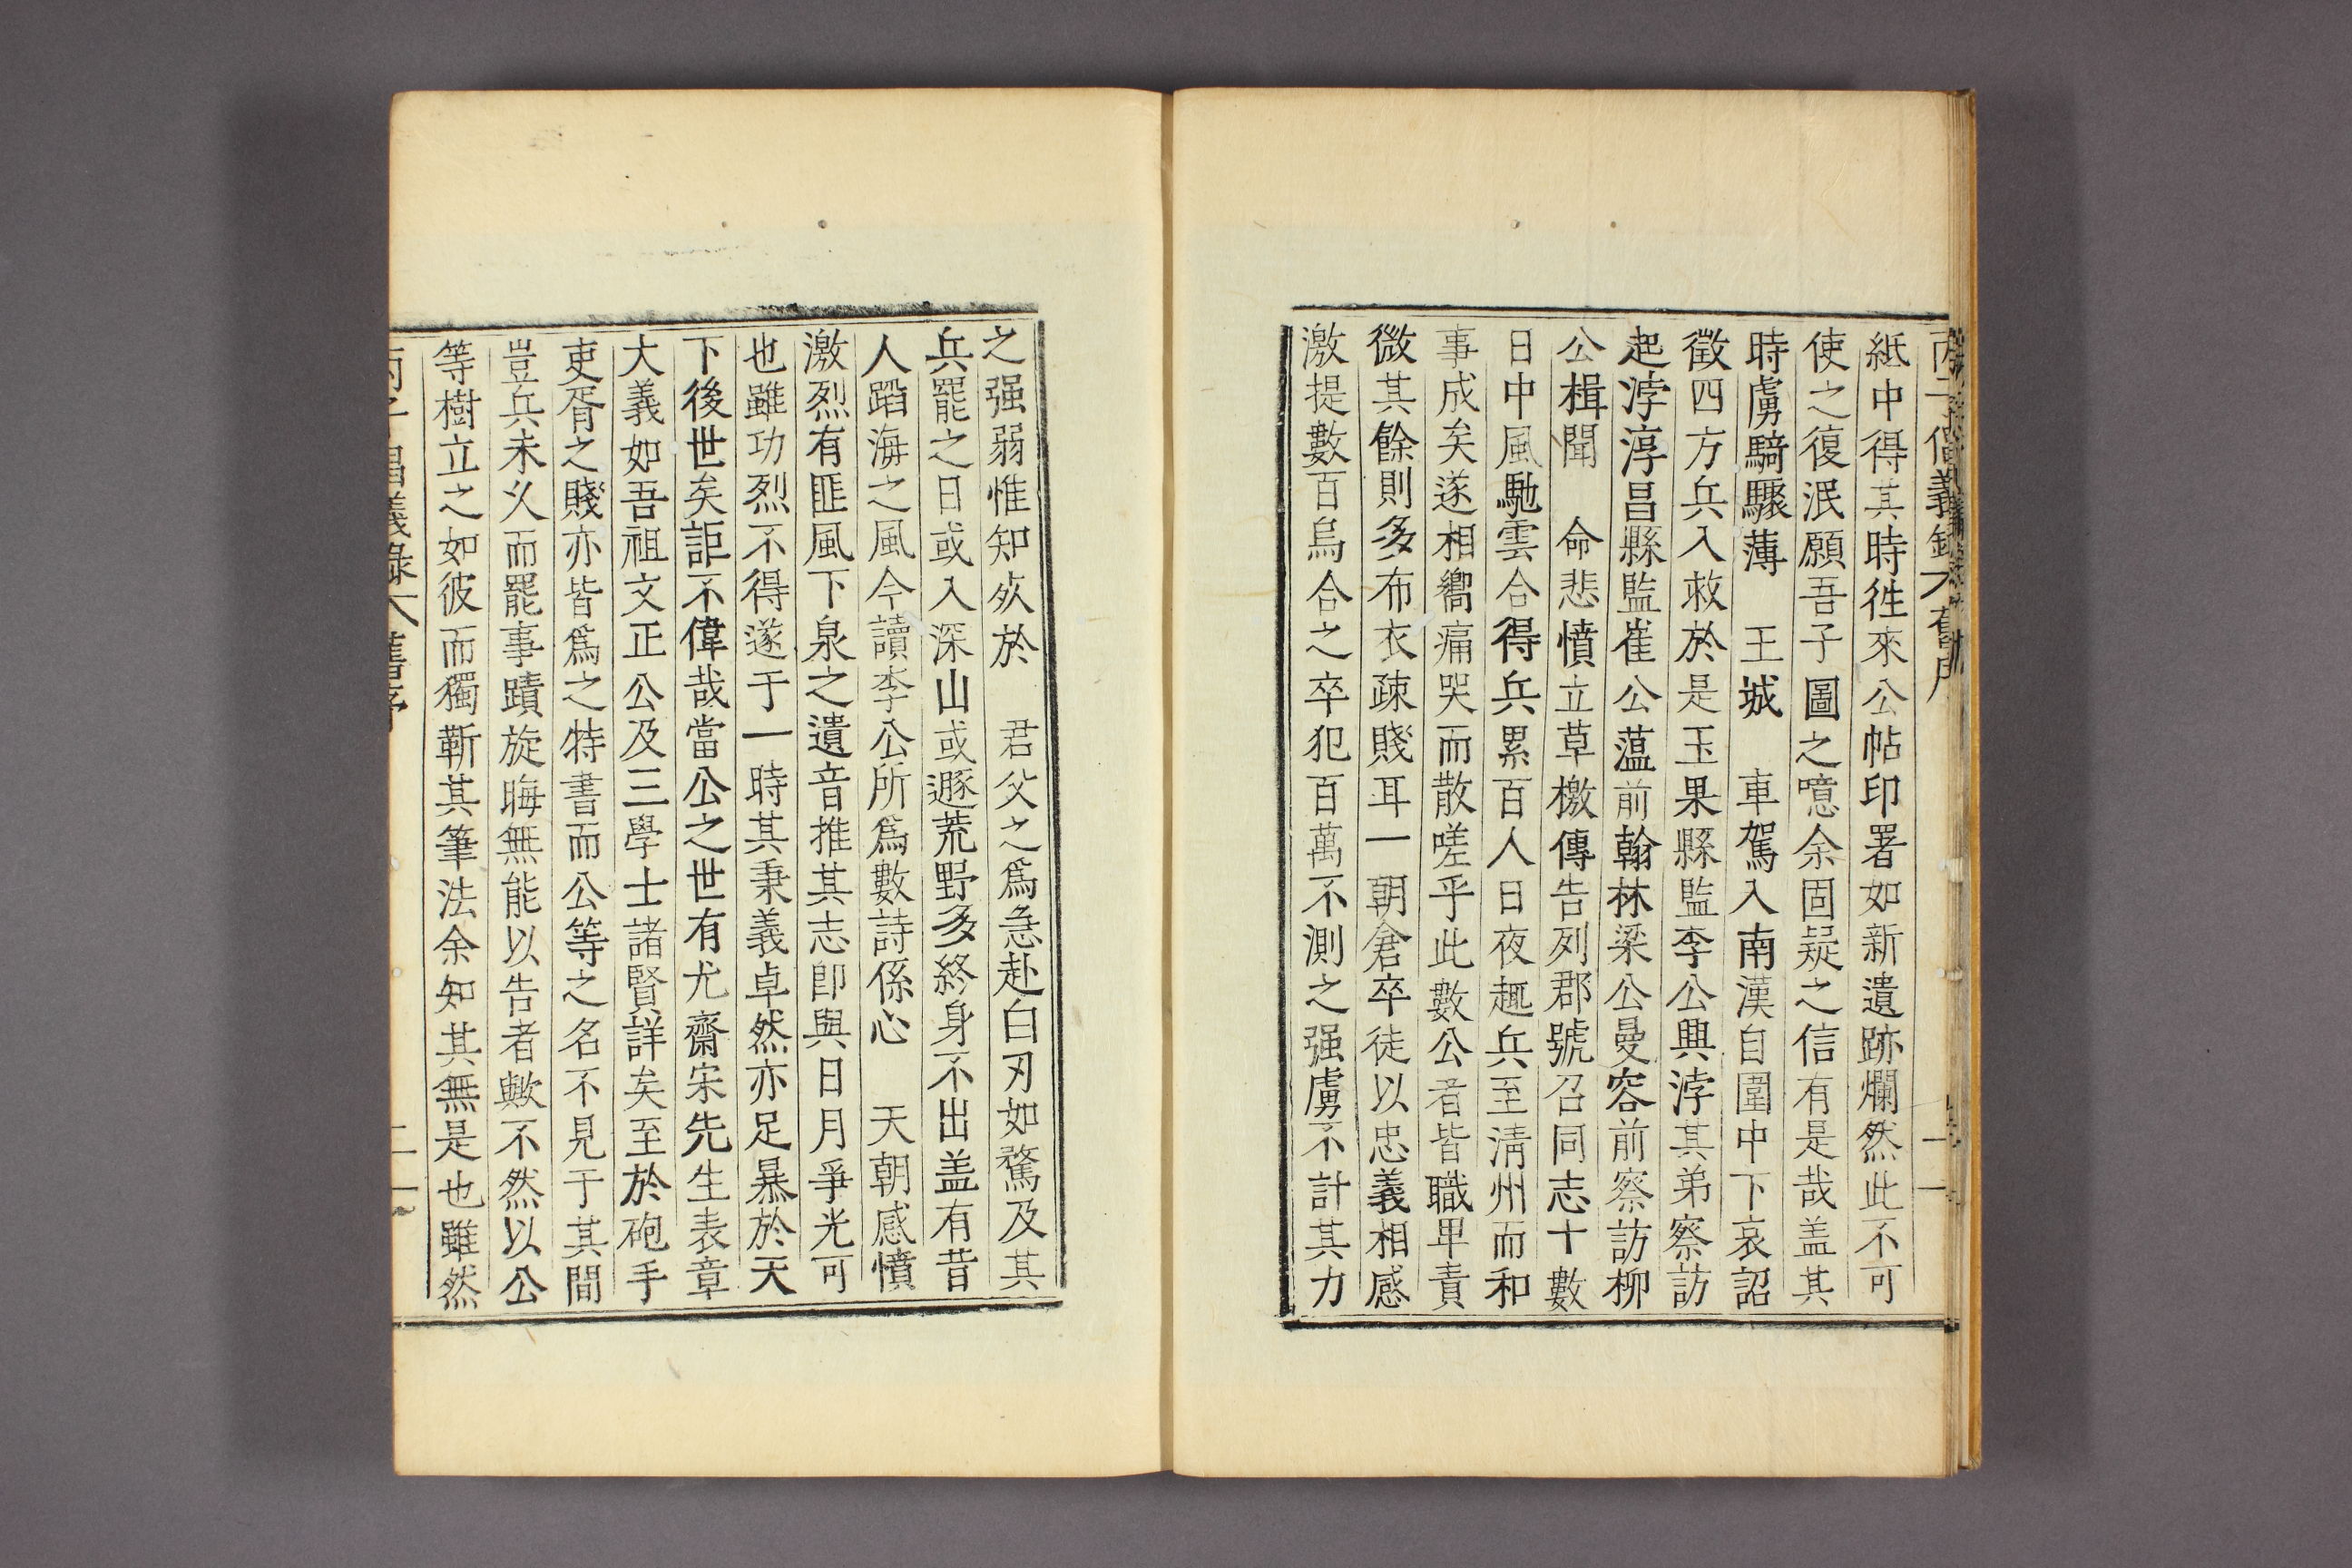 紙中得其時徃來公帖印署如新遺跡爛然此不可
使之復泯願吾子圖之噫余固疑之信有是哉盖其
時虜騎驟薄 王城 車駕入南漢自圍中下哀詔
徵四方兵入救於是玉果縣監李公興浡其弟察訪
起浡淳昌縣監崔公薀前翰林梁公曼容前察訪柳
公楫聞 命悲憤立草檄傳告列郡號召同志十數
日中風馳雲合得兵累百人日夜趣兵至淸州而和
事成矣遂相嚮痛哭而散嗟乎此數公者皆職卑責
微其餘則多布衣疎賤耳一朝倉卒徒以忠義相感
激提數百烏合之卒犯百萬不測之强虜不計其力
之强弱惟知奂於 君父之爲急赴白刃如騖及其
兵罷之日或入深山或遯荒野多終身不出盖有昔
人蹈海之風今讀李公所爲數詩係心 天朝感憤
激烈有匪風下泉之遺音推其志卽與日月爭光可
也雖功烈不得遂于一時其秉義卓然亦足暴於天
下後世矣詎不偉哉當公之世有尤齋宋先生表章
大義如吾祖文正公及三學士諸賢詳矣至於砲手
吏胥之賤亦皆爲之特書而公等之名不見于其間
豈兵未乂而罷事蹟旋晦無能以告者歟不然以公
等樹立之如彼而獨靳其筆法余知其無是也雖然